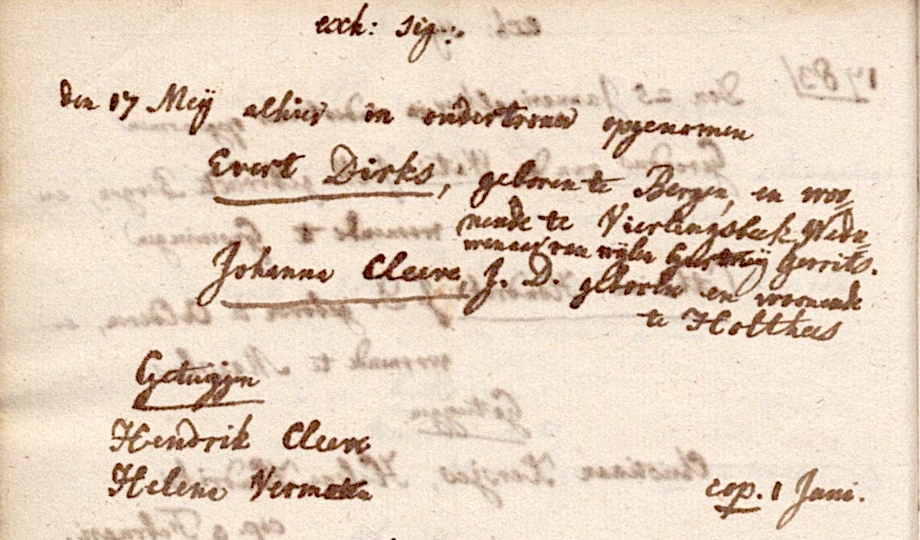 exh: sig:
den 17 Meÿ alhier in ondertrouw opgenomen
Evert Dirks, geboren te Bergen, en woo-
nende te Vierlingsbeek Wedu-
wenaer van wijlen Gerrits.
Johanna Cleeve, J. D. geboren en woonende
te Holthees
Getuijgen
Hendrik Cleeve
Helena Vermeulen
cop. 1 Juni.